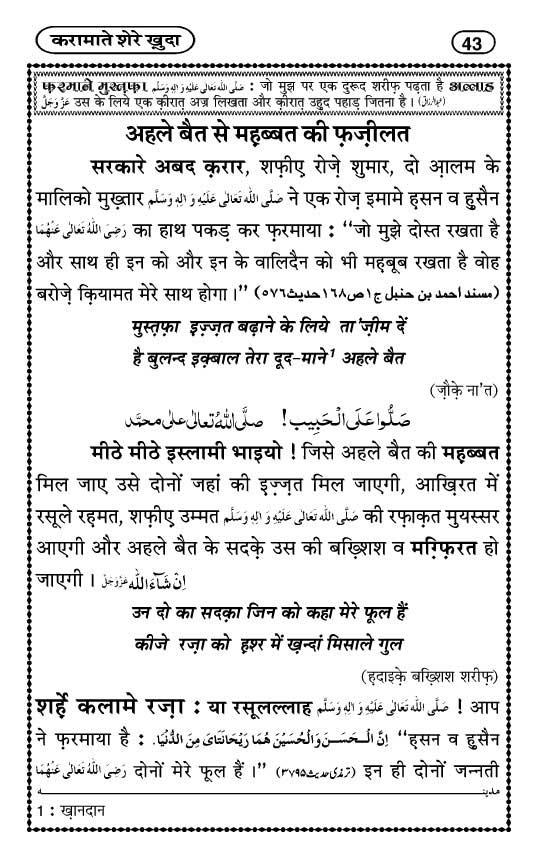 करामाते शेरे ख़ुदा
43
फ़रमाने मुस्तफ़ा صَلَّى اللهُ تَعَالٰى عَلَيْهِ وَاٰلِهٖ وَسَلَّم : जो मुझ पर एक दुरूद शरीफ़ पढ़ता है अल्लाह
عَزَّ وَجَلَّ उस के लिये एक क़ीरात़ अज्र लिखता और क़ीरात़ उहुद पहाड़ जितना है ।
अहले बैत से मह़ब्बत की फ़ज़ीलत
सरकारे अबद क़रार, शफ़ीए रोज़े शुमार, दो आलम के
मालिको मुख़्तार صَلَّى اللهُ تَعَالٰى عَلَيْهِ وَاٰلِهٖ وَسَلَّم ने एक रोज़ इमामे ह़सन व हु़सैन
رَضِىَ اللهُ تَعَالٰى عَنْهُمَا का हाथ पकड़ कर फ़रमाया : “जो मुझे दोस्त रखता है
और साथ ही इन को और इन के वालिदैन को भी मह़बूब रखता है वोह
बरोज़े क़ियामत मेरे साथ होगा ।” (مسند احمد بن حنبل ج۱ص۱۶۸حدیث۵۷۶)
मुस्त़फ़ा इज़्ज़त बढ़ाने के लिये ता'ज़ीम दें
है बुलन्द इक़्बाल तेरा दूद-माने¹ अहले बैत
(ज़ौके़ ना'त)
صَلُّوا عَلَى الْحَبِيب! صلَّى اللهُ تعالٰى علٰى محمَّد
मीठे मीठे इस्लामी भाइयो ! जिसे अहले बैत की मह़ब्बत
मिल जाए उसे दोनों जहां की इ़ज़्ज़त मिल जाएगी, आख़िरत में
रसूले रह़मत, शफ़ीए उम्मत صَلَّى اللهُ تَعَالٰى عَلَيْهِ وَاٰلِهٖ وَسَلَّم की रफ़ाक़त मुयस्सर
आएगी और अहले बैत के सदके़ उस की बख़्शिश व मग़्फ़िरत हो
जाएगी । اِنْ شَآءَاللّٰه عَزَّوَجَلَّ
उन दो का सदक़ा जिन को कहा मेरे फूल हैं
कीजे रज़ा को ह़श्र में ख़न्दां मिसाले गुल
(ह़दाइके़ बख़्शिश शरीफ़)
शर्हे़ कलामे रज़ा : या रसूलल्लाह صَلَّى اللهُ تَعَالٰى عَلَيْهِ وَاٰلِهٖ وَسَلَّم ! आप
ने फ़रमाया है : اِنَّ الْحَسَنَ وَالْحُسَيْنَ هُمَا رَيْحَانَتَاىَ مِنَ الدُّنْيَا. “ह़सन व हु़सैन
رَضِىَ اللهُ تَعَالٰى عَنْهُمَا दोनों मेरे फूल हैं ।” (ترمذی حدیث ۳۷۹۵) इन ही दोनों जन्नती
مدینہ
1 : ख़ानदान